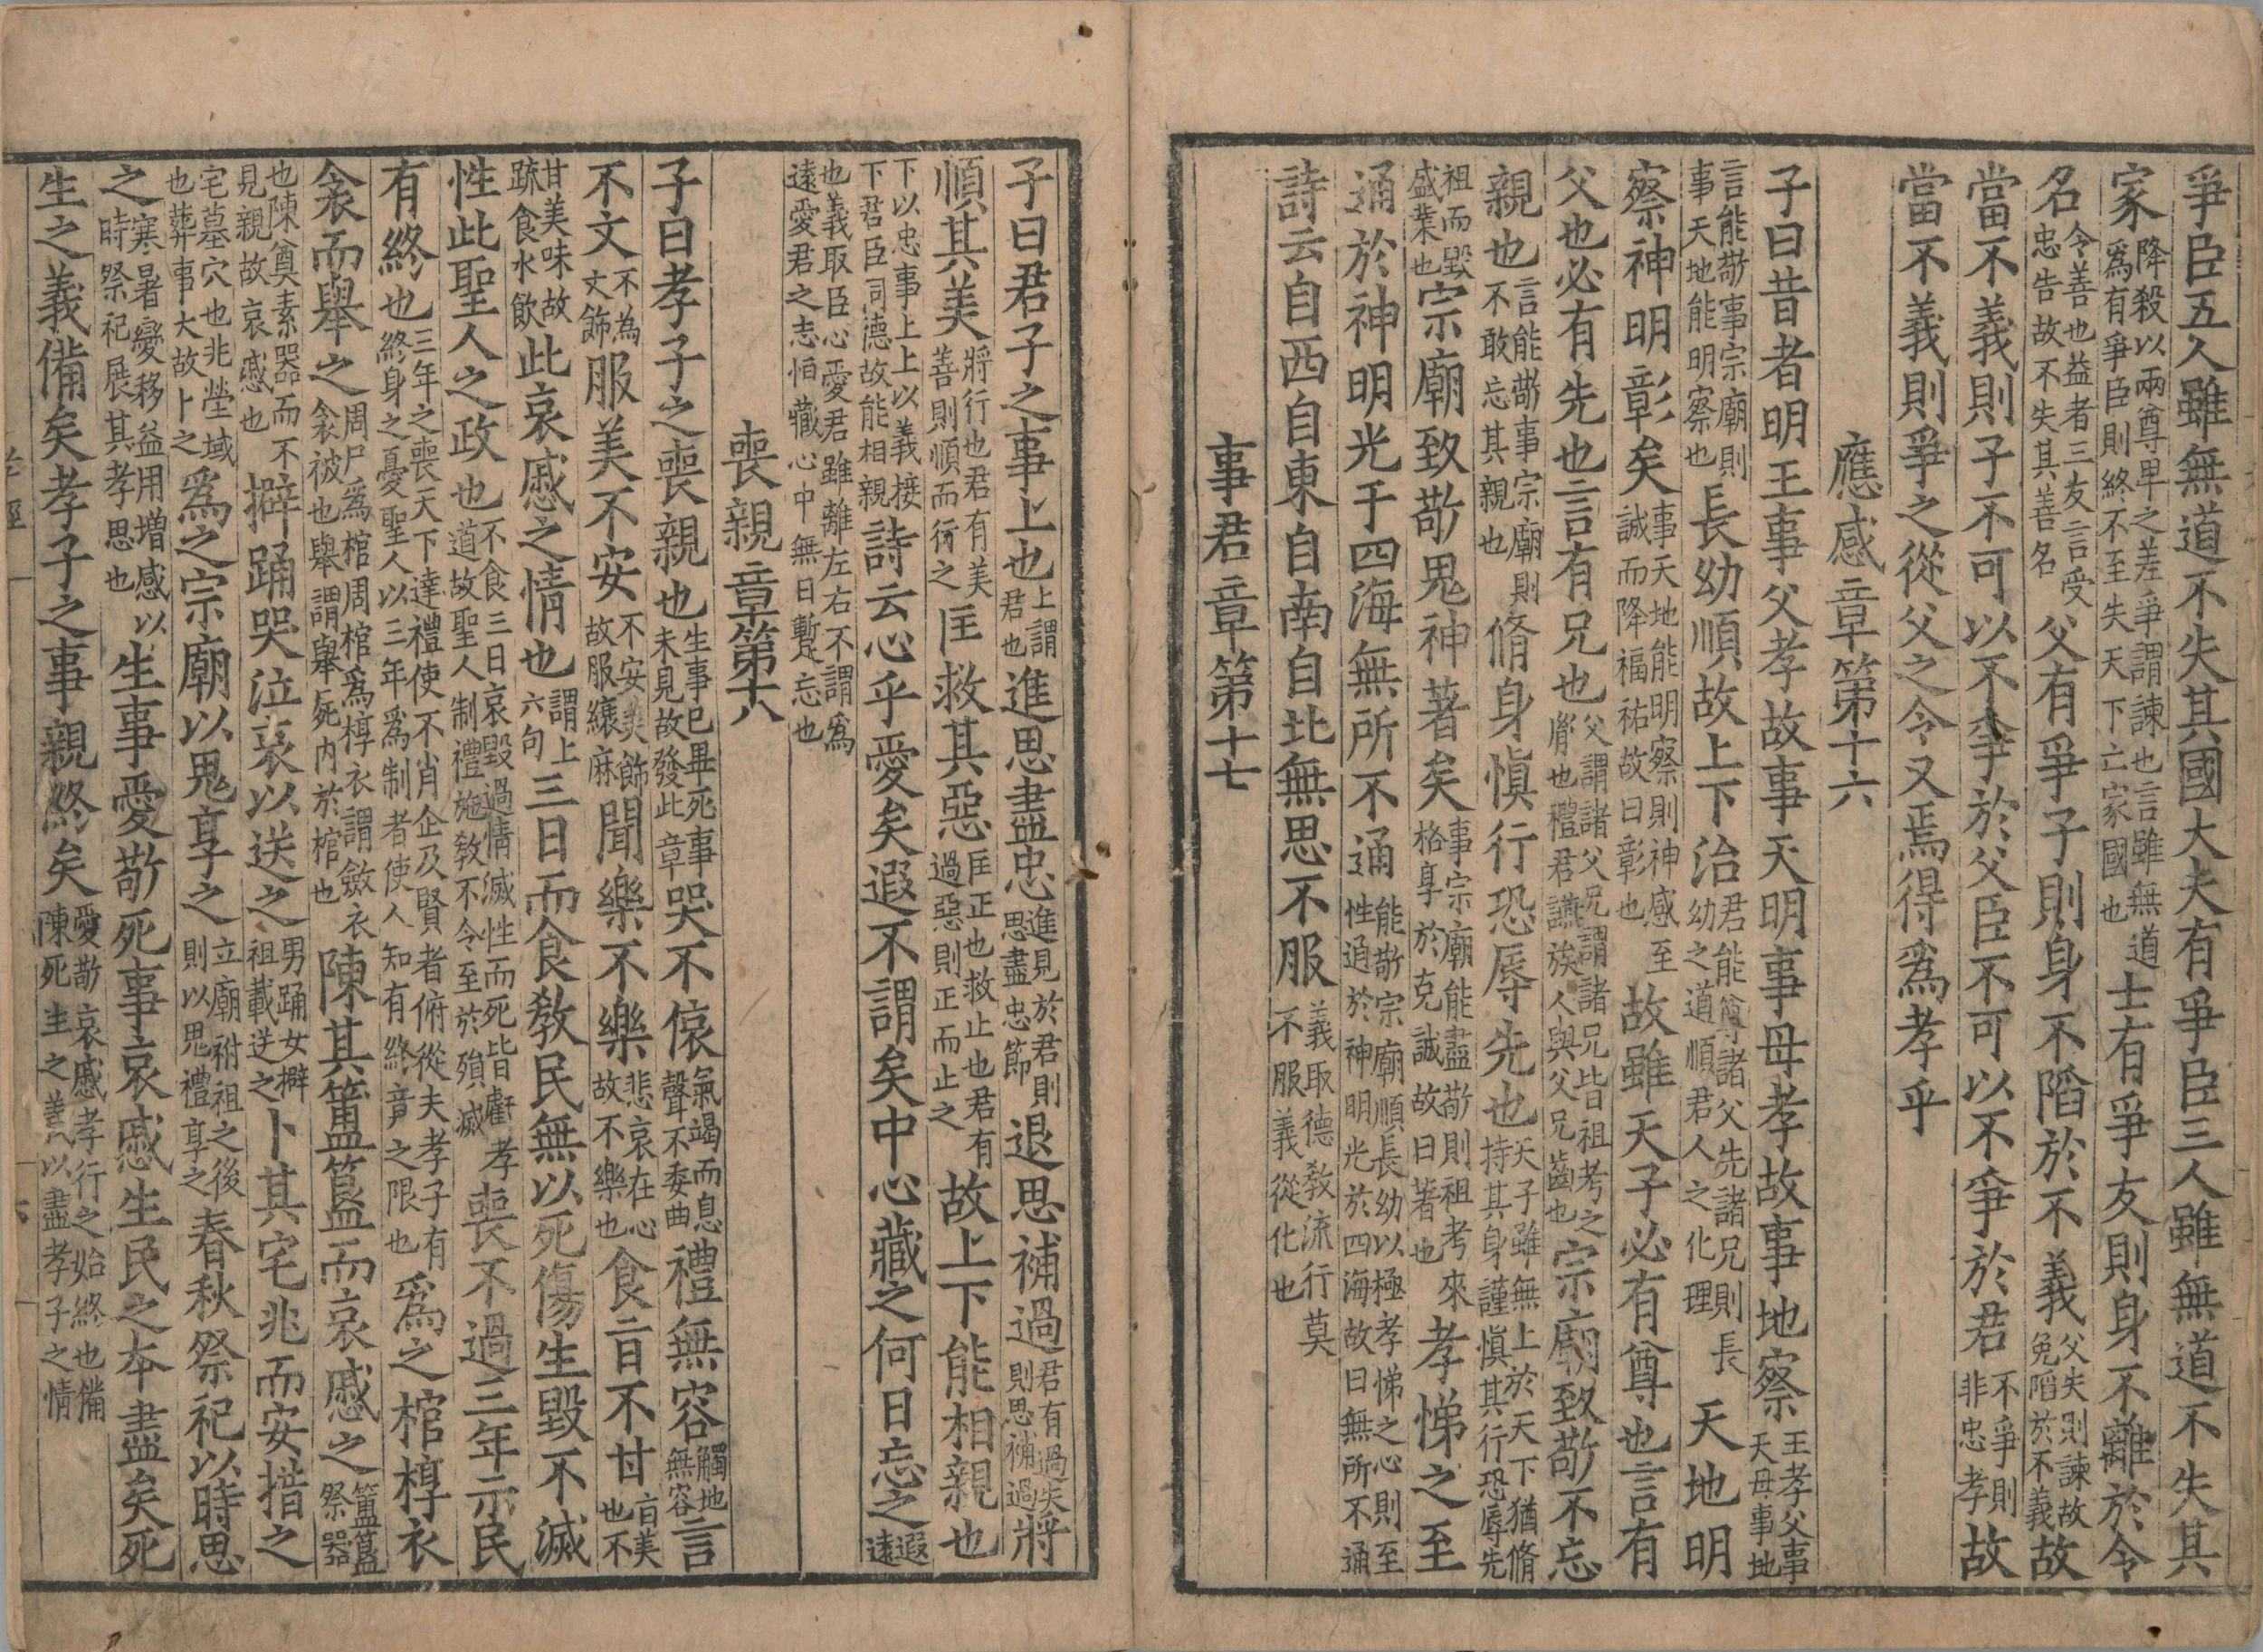 爭臣五人雖無道不失其國大夫有爭臣三人雖無道不失其
家降殺以兩尊卑之差爭謂諫也言雖無道爲有爭臣則終不至失天下亡家國也士有爭友則身不離於令
名令善也益者三友言受忠告故不失其善名父有爭子則身不陷於不義父失則諫故免陷於不義故
當不義則子不可以不爭於父臣不可以不爭於君不爭則非忠孝故
當不義則爭之從父之令又焉得爲孝乎
應感章第十六
子曰昔者明王事父孝故事天明事母孝故事地察王孝父事天母事地
言能敬事宗廟則事天地能明察也長幼順故上下治君能尊諸父先諸兄則長幼之道順君人之化理天地明
察神明彰矣事天地能明察則神感至誠而降福祐故曰彰也故雖天子必有尊也言有
父也必有先也言有兄也父謂諸父兄謂諸兄皆祖考之胤也禮君讌族人與父兄齒也宗廟致敬不忘
親也言能敬事宗廟則不敢忘其親也脩身愼行恐辱先也天子雖無上於天下猶脩持其身謹愼其行恐辱先
祖而毀盛業也宗廟致敬鬼神著矣事宗廟能盡敬則祖考來格享於克誠故曰著也孝悌之至
通於神明光于四海無所不通能敬宗廟順長幼以極孝悌之心則至性通於神明光於四海故曰無所不通
詩云自西自東自南自北無思不服義取德教流行莫不服義從化也
事君章第十七
子曰君子之事上也上謂君也進思盡忠進見於君則思盡忠節退思補過君有過失則思補過將
順其美將行也君有美善則順而行之匡救其惡匡正也救止也君有過惡則正而止之故上下能相親也
下以忠事上上以義接下君臣同德故能相親詩云心乎愛矣遐不謂矣中心藏之何日忘之遐遠
也義取臣心愛君雖離左右不謂爲遠愛君之志恒藏心中無日暫忘也
喪親章第十八
子曰孝子之喪親也生事已畢死事未見故發此章哭不偯氣竭而息聲不委曲禮無容觸地無容言
不文不為文飾服美不安不安美飾故服縗麻聞樂不樂悲哀在心故不樂也食旨不甘旨美也不
甘美味故疏食水飲此哀慼之情也謂上六句三日而食教民無以死傷生毀不滅
性此聖人之政也不食三日哀毀過情滅性而死皆虧孝道故聖人制禮施教不令至於殞滅喪不過三年示民
有終也三年之喪天下達禮使不肖企及賢者俯從夫孝子有終身之憂聖人以三年爲制者使人知有終竟之限也爲之棺椁衣
衾而舉之周尸爲棺周棺爲椁衣謂斂衣衾被也舉謂舉死內於棺也陳其簠簋而哀慼之簠簋祭器
也陳奠素器而不見親故哀慼也擗踊哭泣哀以送之男踊女擗祖載送之卜其宅兆而安措之
宅墓穴也兆塋域也葬事大故卜之爲之宗廟以鬼享之立廟祔祖之後則以鬼禮享之春秋祭祀以時思
之寒暑變移益用增感以時祭祀展其孝思也生事愛敬死事哀慼生民之本盡矣死
生之義備矣孝子之事親終矣愛敬哀慼孝行之始終也備陳死生之義以盡孝子之情